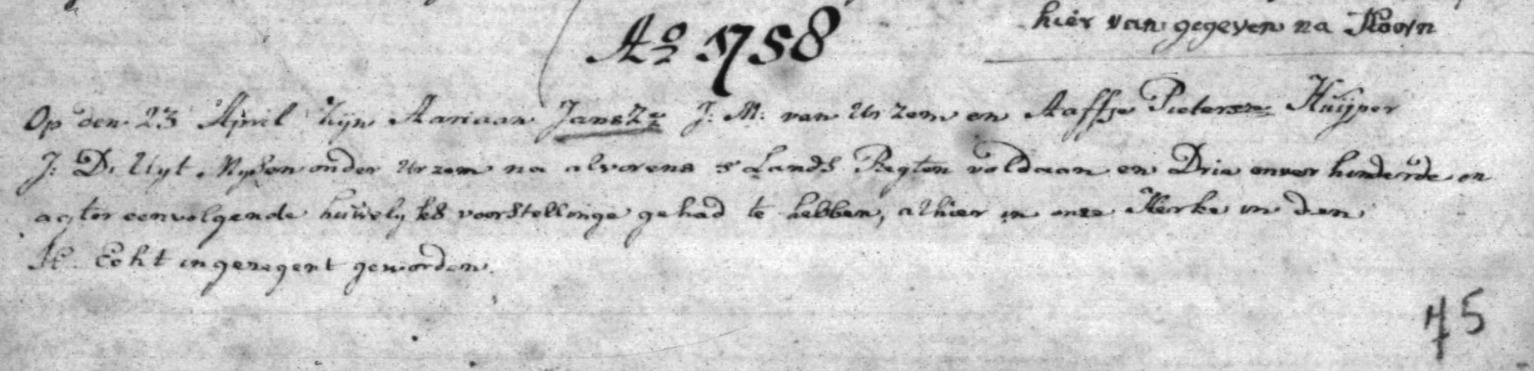 hier van gegeven na Hoorn
Ao 1758
Op den 23 April Zijn Aariaan Jansz: J: M: van Urzem en Aafje Pietersz: Kuijper
J: D: Uyt Mysen onder Urzem na alvorens s Lands Regten voldaan en Drie onverhinderde en
agter eenvolgende huwelykes voorstellinge gehad te hebben, alhier in onze Kerke in den
H. Echt ingezegent geworden.
75